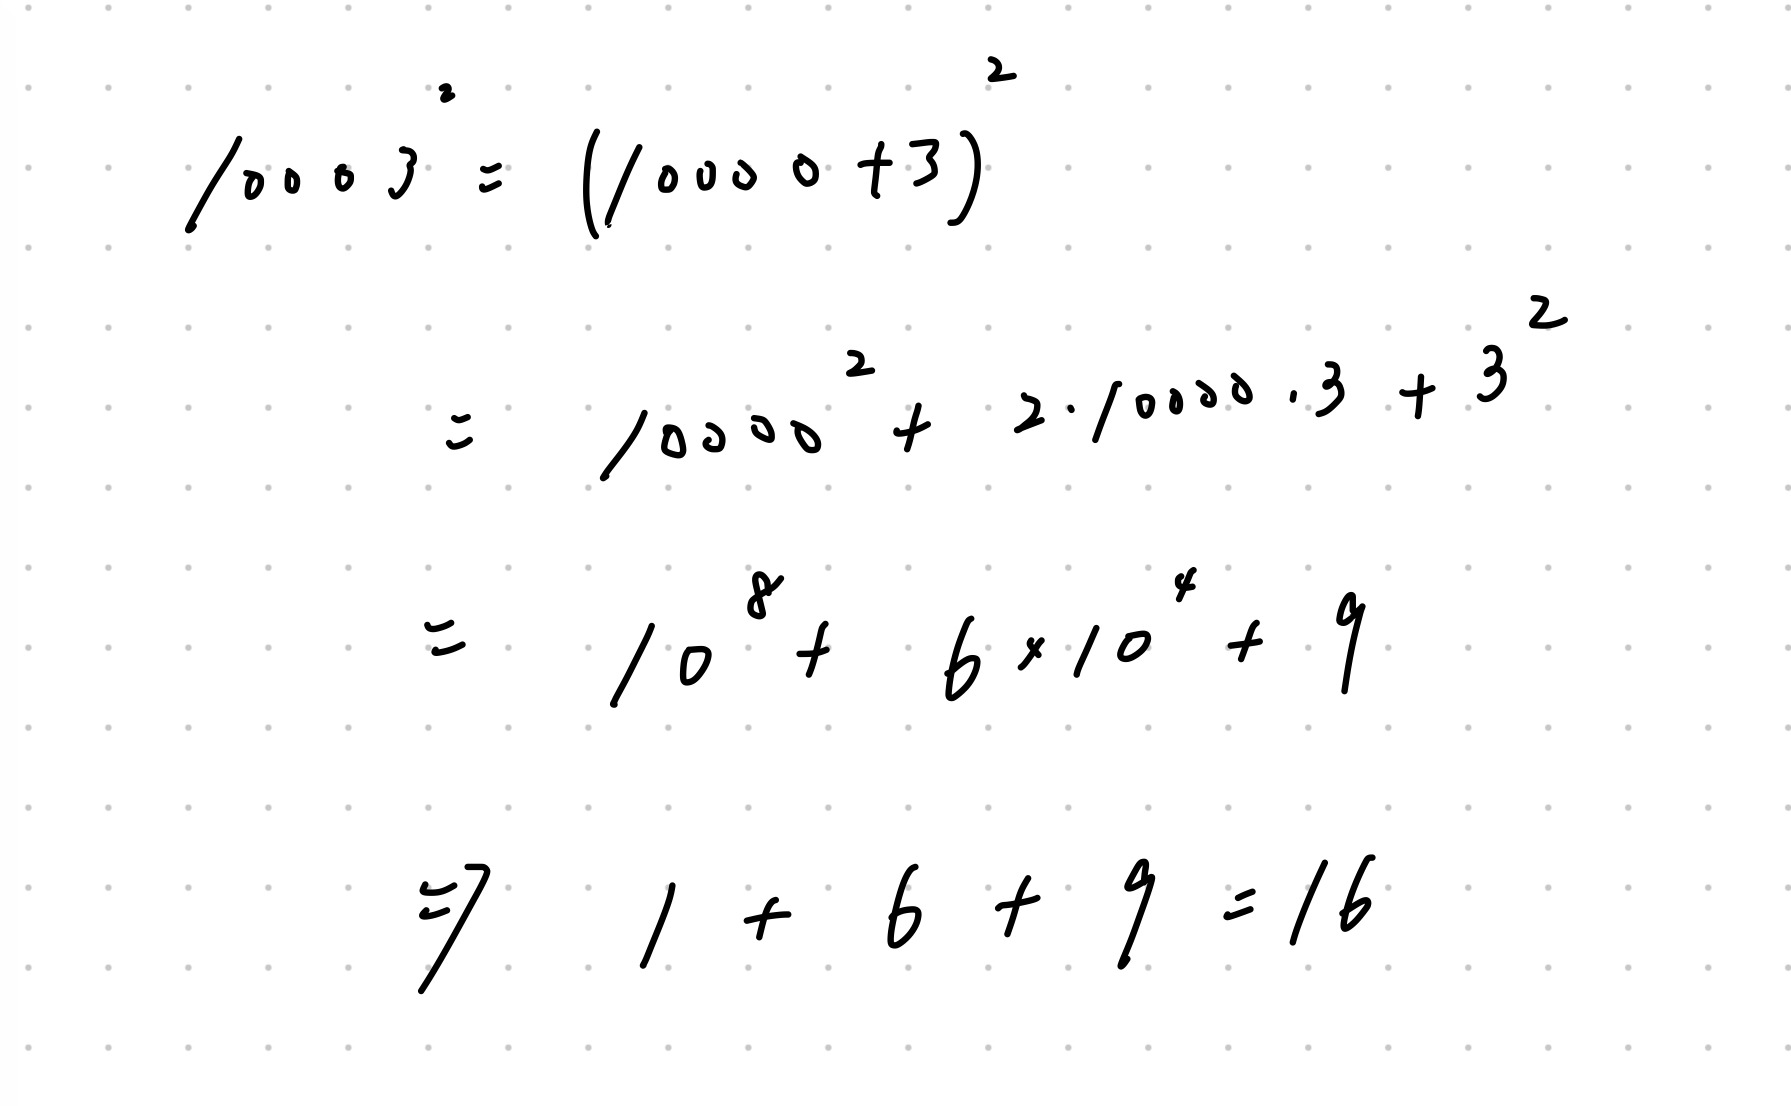 10003² = (10000+3)²
= 10000² + 2·10000·3 + 3²
= 10⁸ + 6×10⁴ + 9
⇒ 1 + 6 + 9 = 16